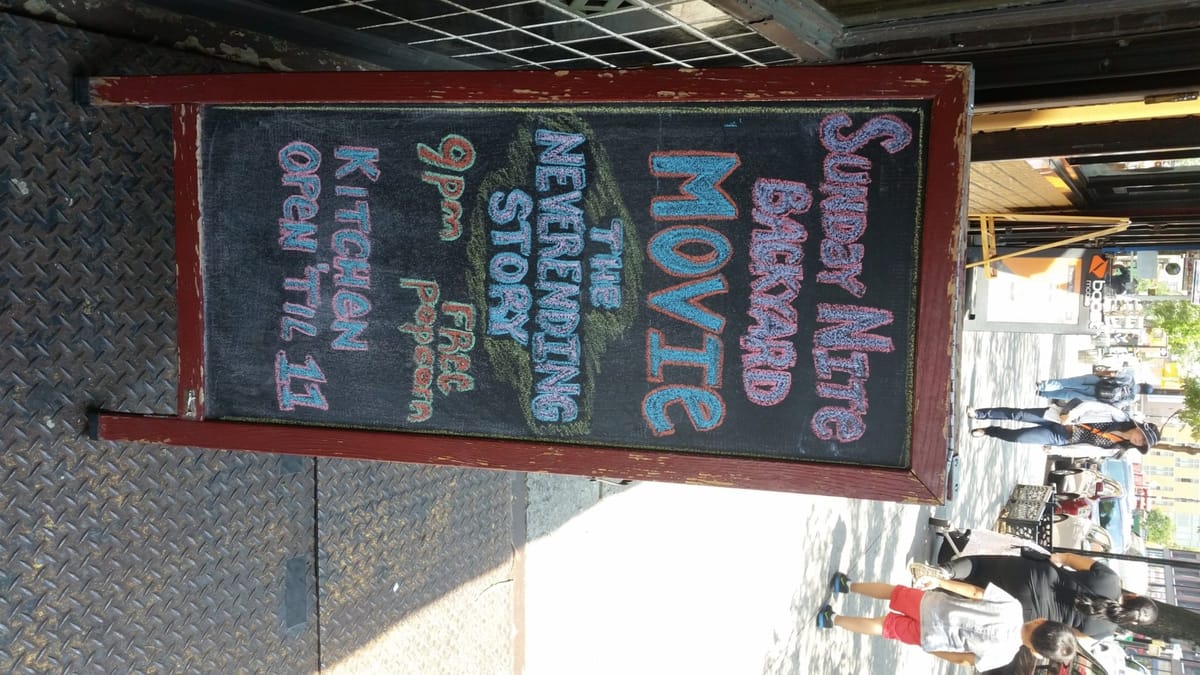 Sunday Nite
BACKYARD
MOVIE
THE
NEVERENDING
STORY
9pm
FREE
popcorn
KITCHEN
OPEN 'TIL 11
boo